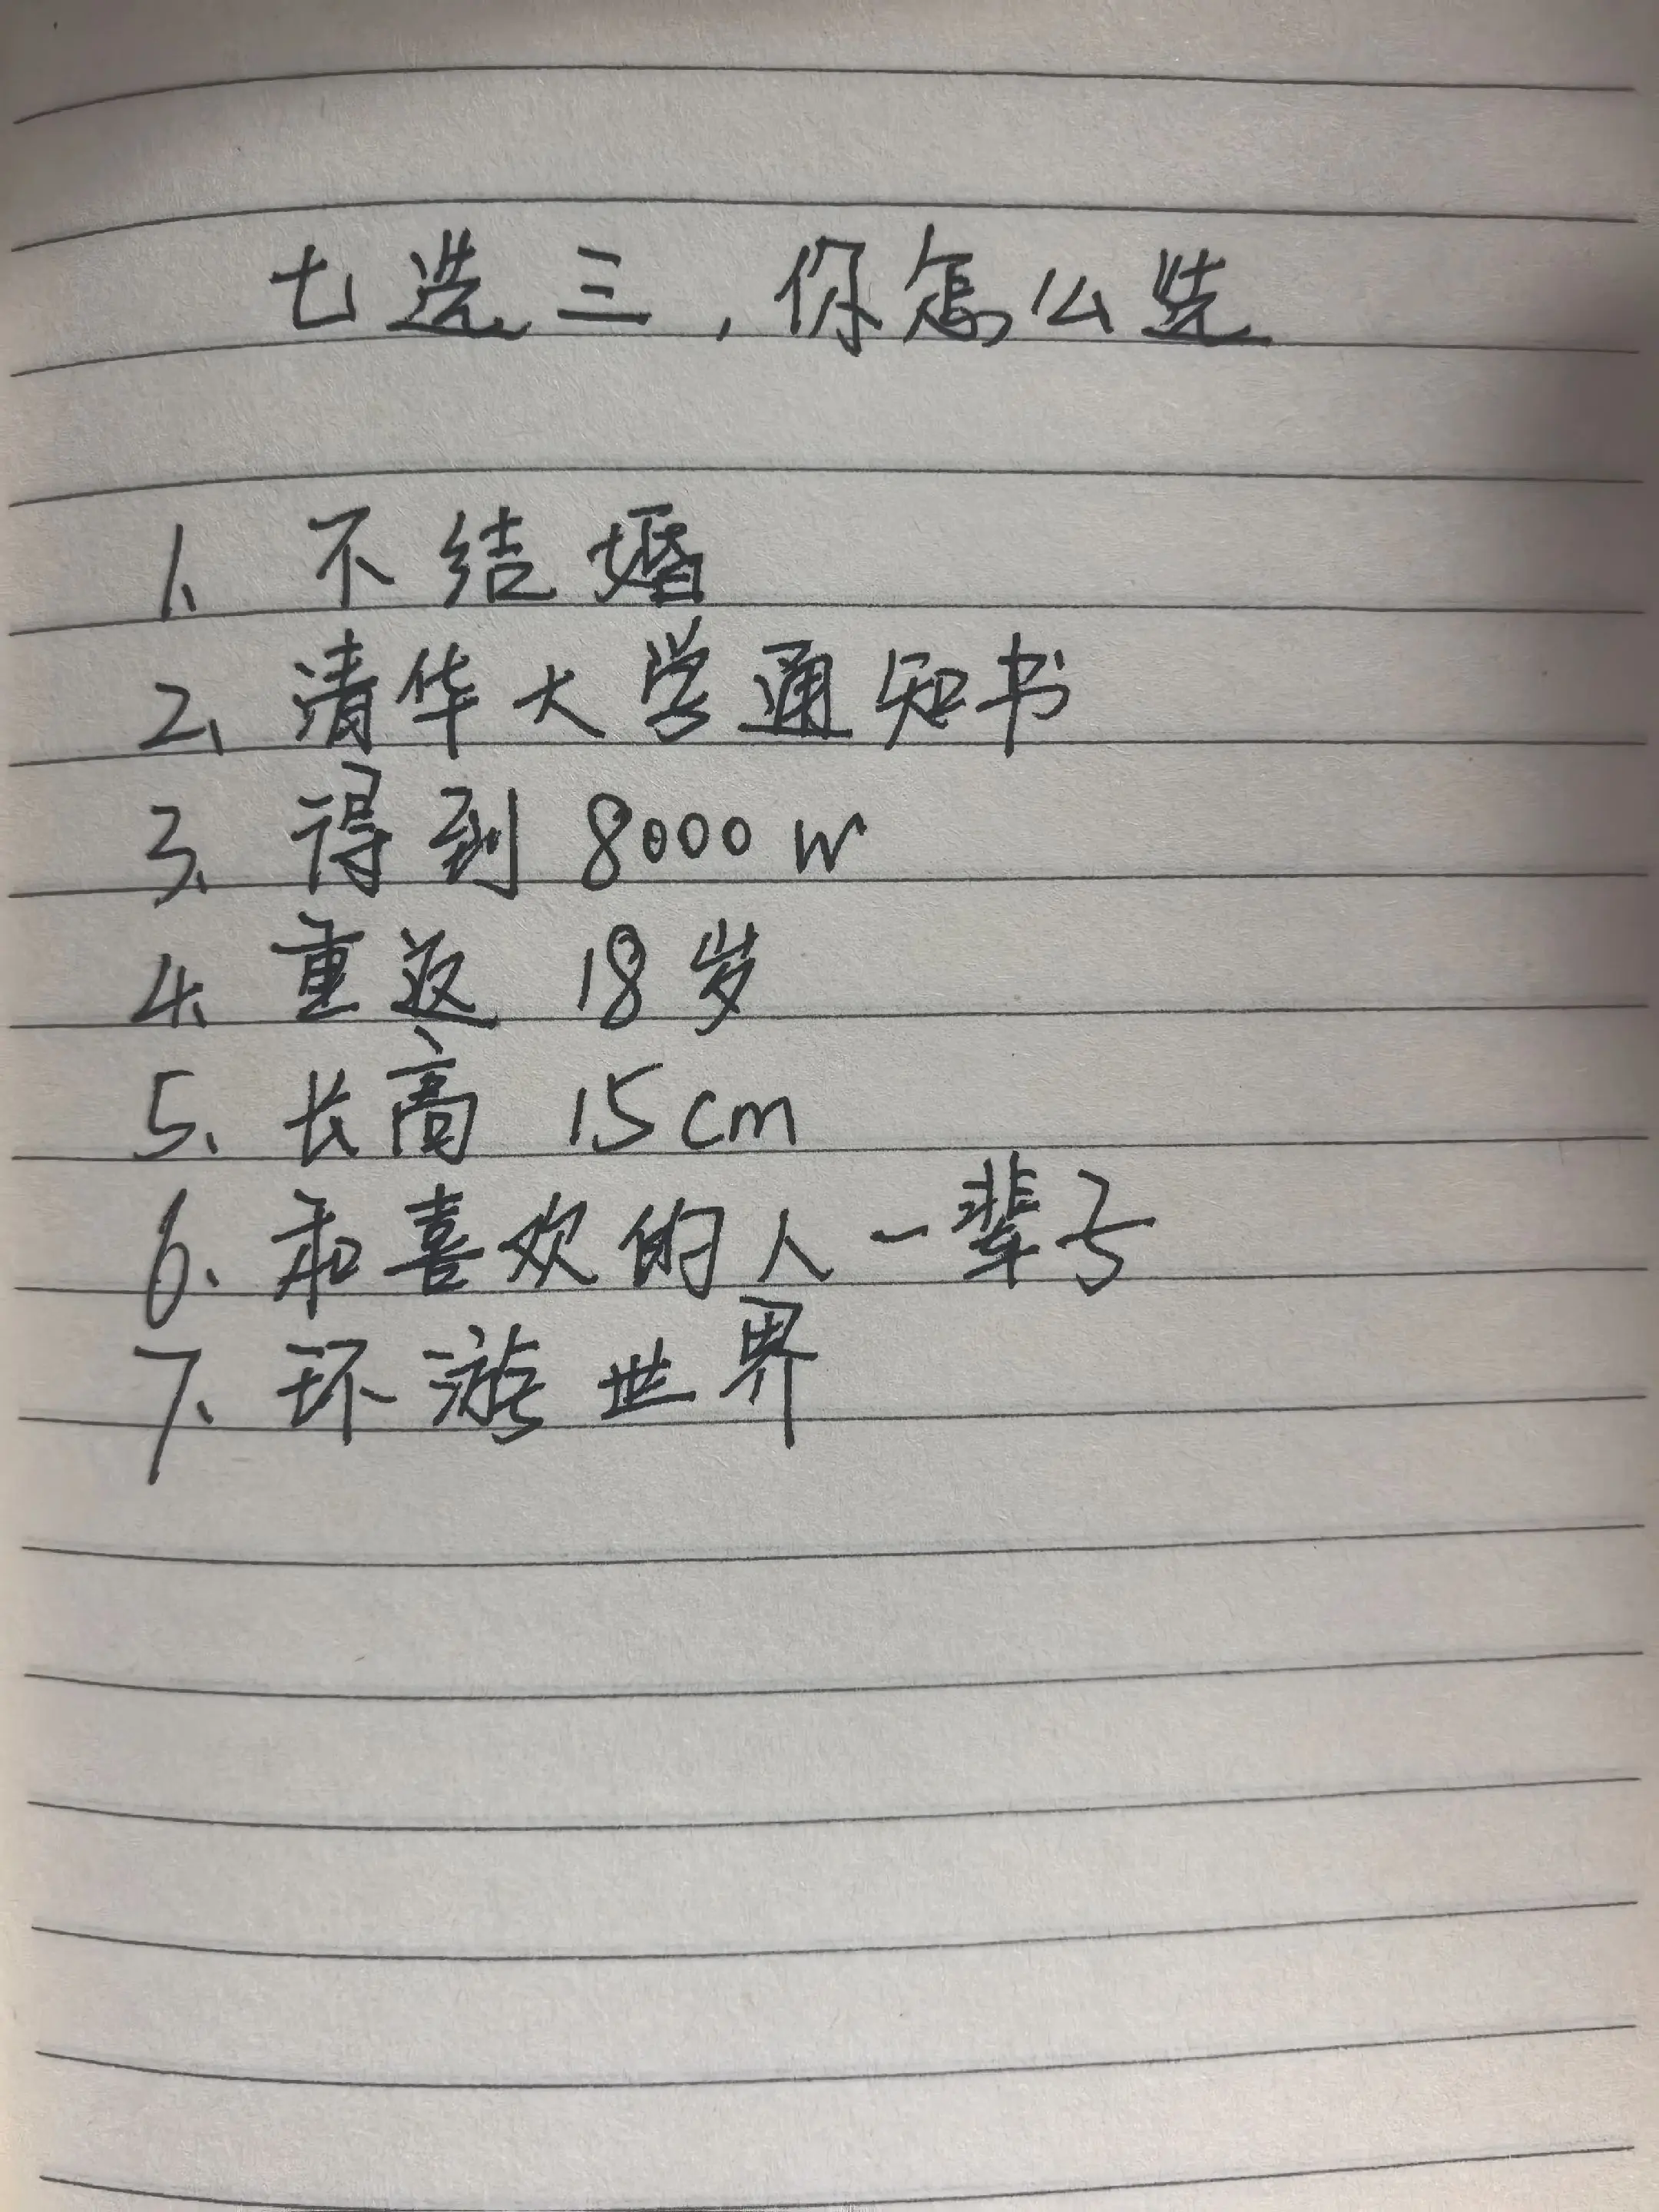 七选三，你怎么选
1、不结婚
2、清华大学通知书
3、得到 8000w
4、重返 18岁
5、长高 15cm
6、和喜欢的人一辈子
7、环游世界